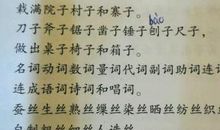 栽满院子村子和寨子。
bào
刀子斧子锯子凿子锤子刨子尺子,
做出桌子椅子和箱子。
名词动词数词量词代词副词助词连词
连成语词诗词和唱词。
蚕丝生丝熟丝缫丝染丝晒丝纺丝织